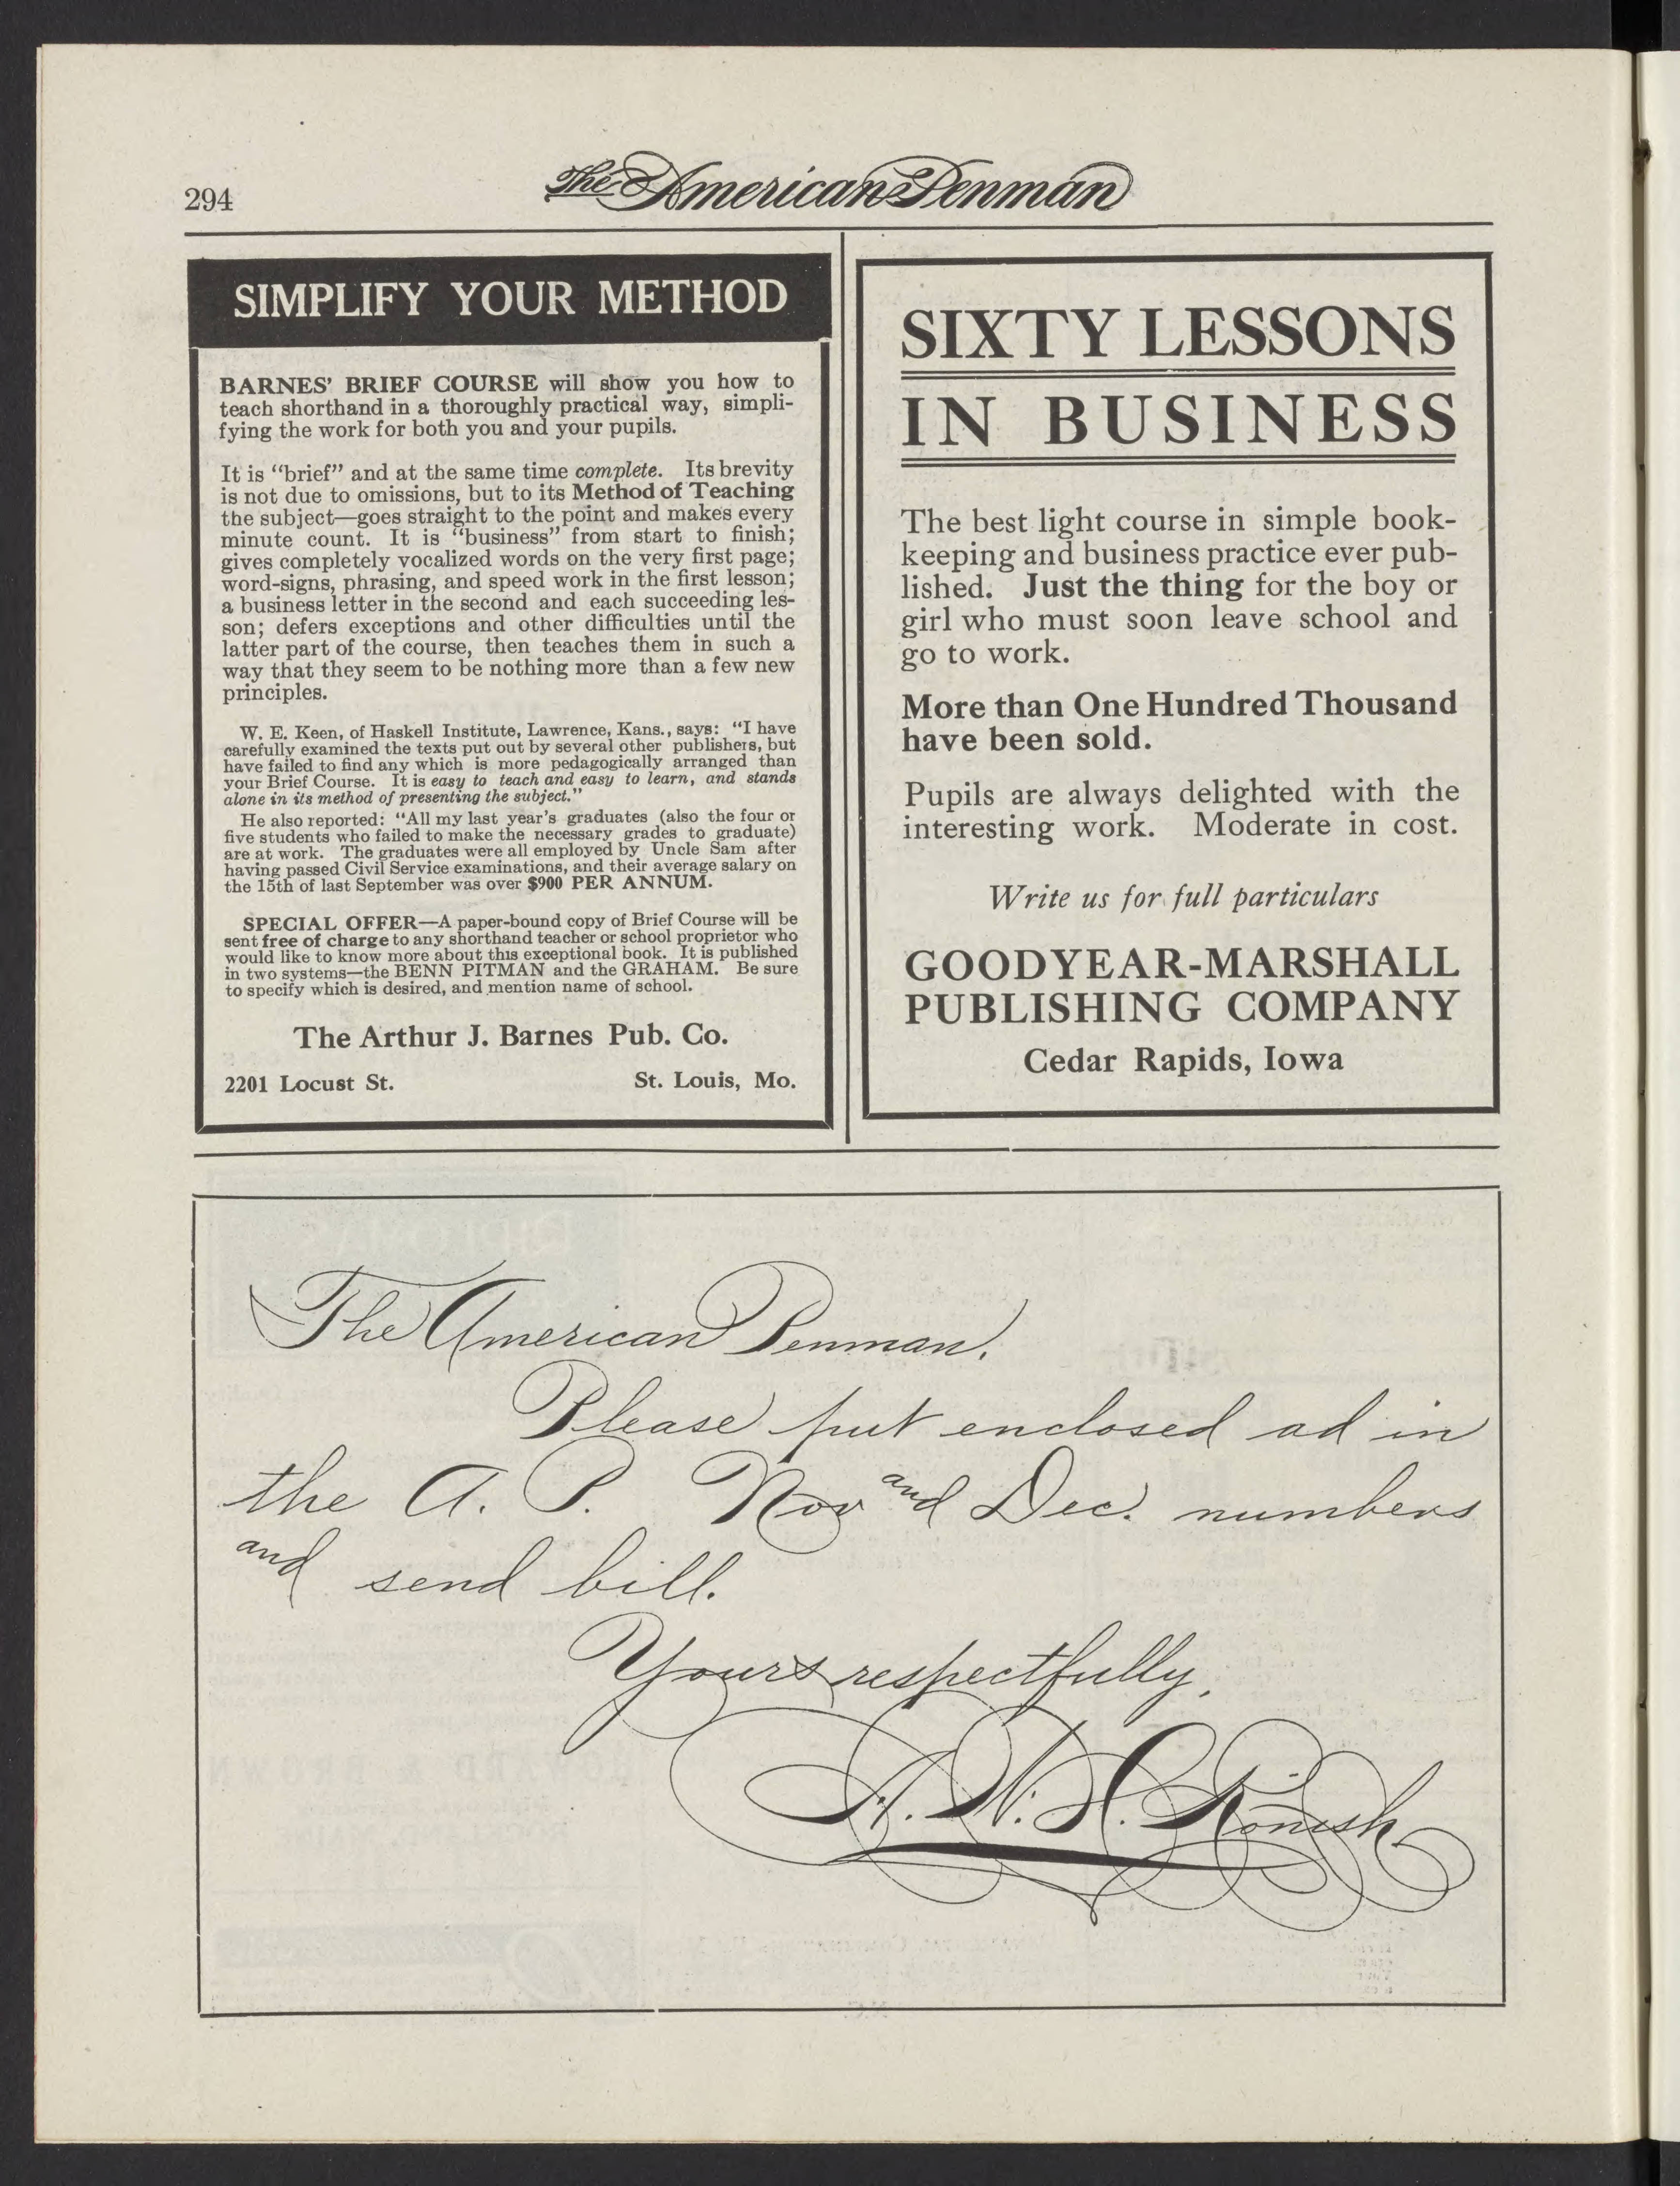 294
The American Penman
SIMPLIFY YOUR METHOD
BARNES' BRIEF COURSE will show you how to
teach shorthand in a thoroughly practical way, simpli-
fying the work for both you and your pupils.
It is "brief" and at the same time complete. Its brevity
is not due to omissions, but to its Method of Teaching
the subject—goes straight to the point and makes every
minute count. It is "business" from start to finish;
gives completely vocalized words on the very first page;
word-signs, phrasing, and speed work in the first lesson;
a business letter in the second and each succeeding les-
son; defers exceptions and other difficulties until the
latter part of the course, then teaches them in such a
way that they seem to be nothing more than a few new
principles.
W. E. Keen, of Haskell Institute, Lawrence, Kans., says: "I have
carefully examined the texts put out by several other publishers, but
have failed to find any which is more pedagogically arranged than
your Brief Course. It is easy to teach and easy to learn, and stands
alone in its method of presenting the subject."
He also reported: "All my last year's graduates (also the four or
five students who failed to make the necessary grades to graduate)
are at work. The graduates were all employed by Uncle Sam after
having passed Civil Service examinations, and their average salary on
the 15th of last September was over $900 PER ANNUM.
SPECIAL OFFER—A paper-bound copy of Brief Course will be
sent free of charge to any shorthand teacher or school proprietor who
would like to know more about this exceptional book. It is published
in two systems—the BENN PITMAN and the GRAHAM. Be sure
to specify which is desired, and mention name of school.
The Arthur J. Barnes Pub. Co.
2201 Locust St. St. Louis, Mo.
SIXTY LESSONS
IN BUSINESS
The best light course in simple book-
keeping and business practice ever pub-
lished. Just the thing for the boy or
girl who must soon leave school and
go to work.
More than One Hundred Thousand
have been sold.
Pupils are always delighted with the
interesting work. Moderate in cost.
Write us for full particulars
GOODYEAR-MARSHALL
PUBLISHING COMPANY
Cedar Rapids, Iowa
The American Penman.
Please put enclosed ad in
the A. P. Nov and Dec. numbers
and send bill.
Yours respectfully,
A. W. H. Ronish